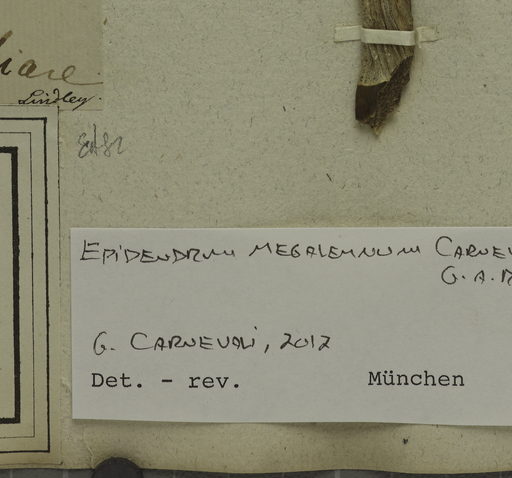 liare
Lindley.
EPIDENDRUM MEGALEMNUM CARNEV
G. A. R
G. CARNEVALI, 2012
Det. - rev. München